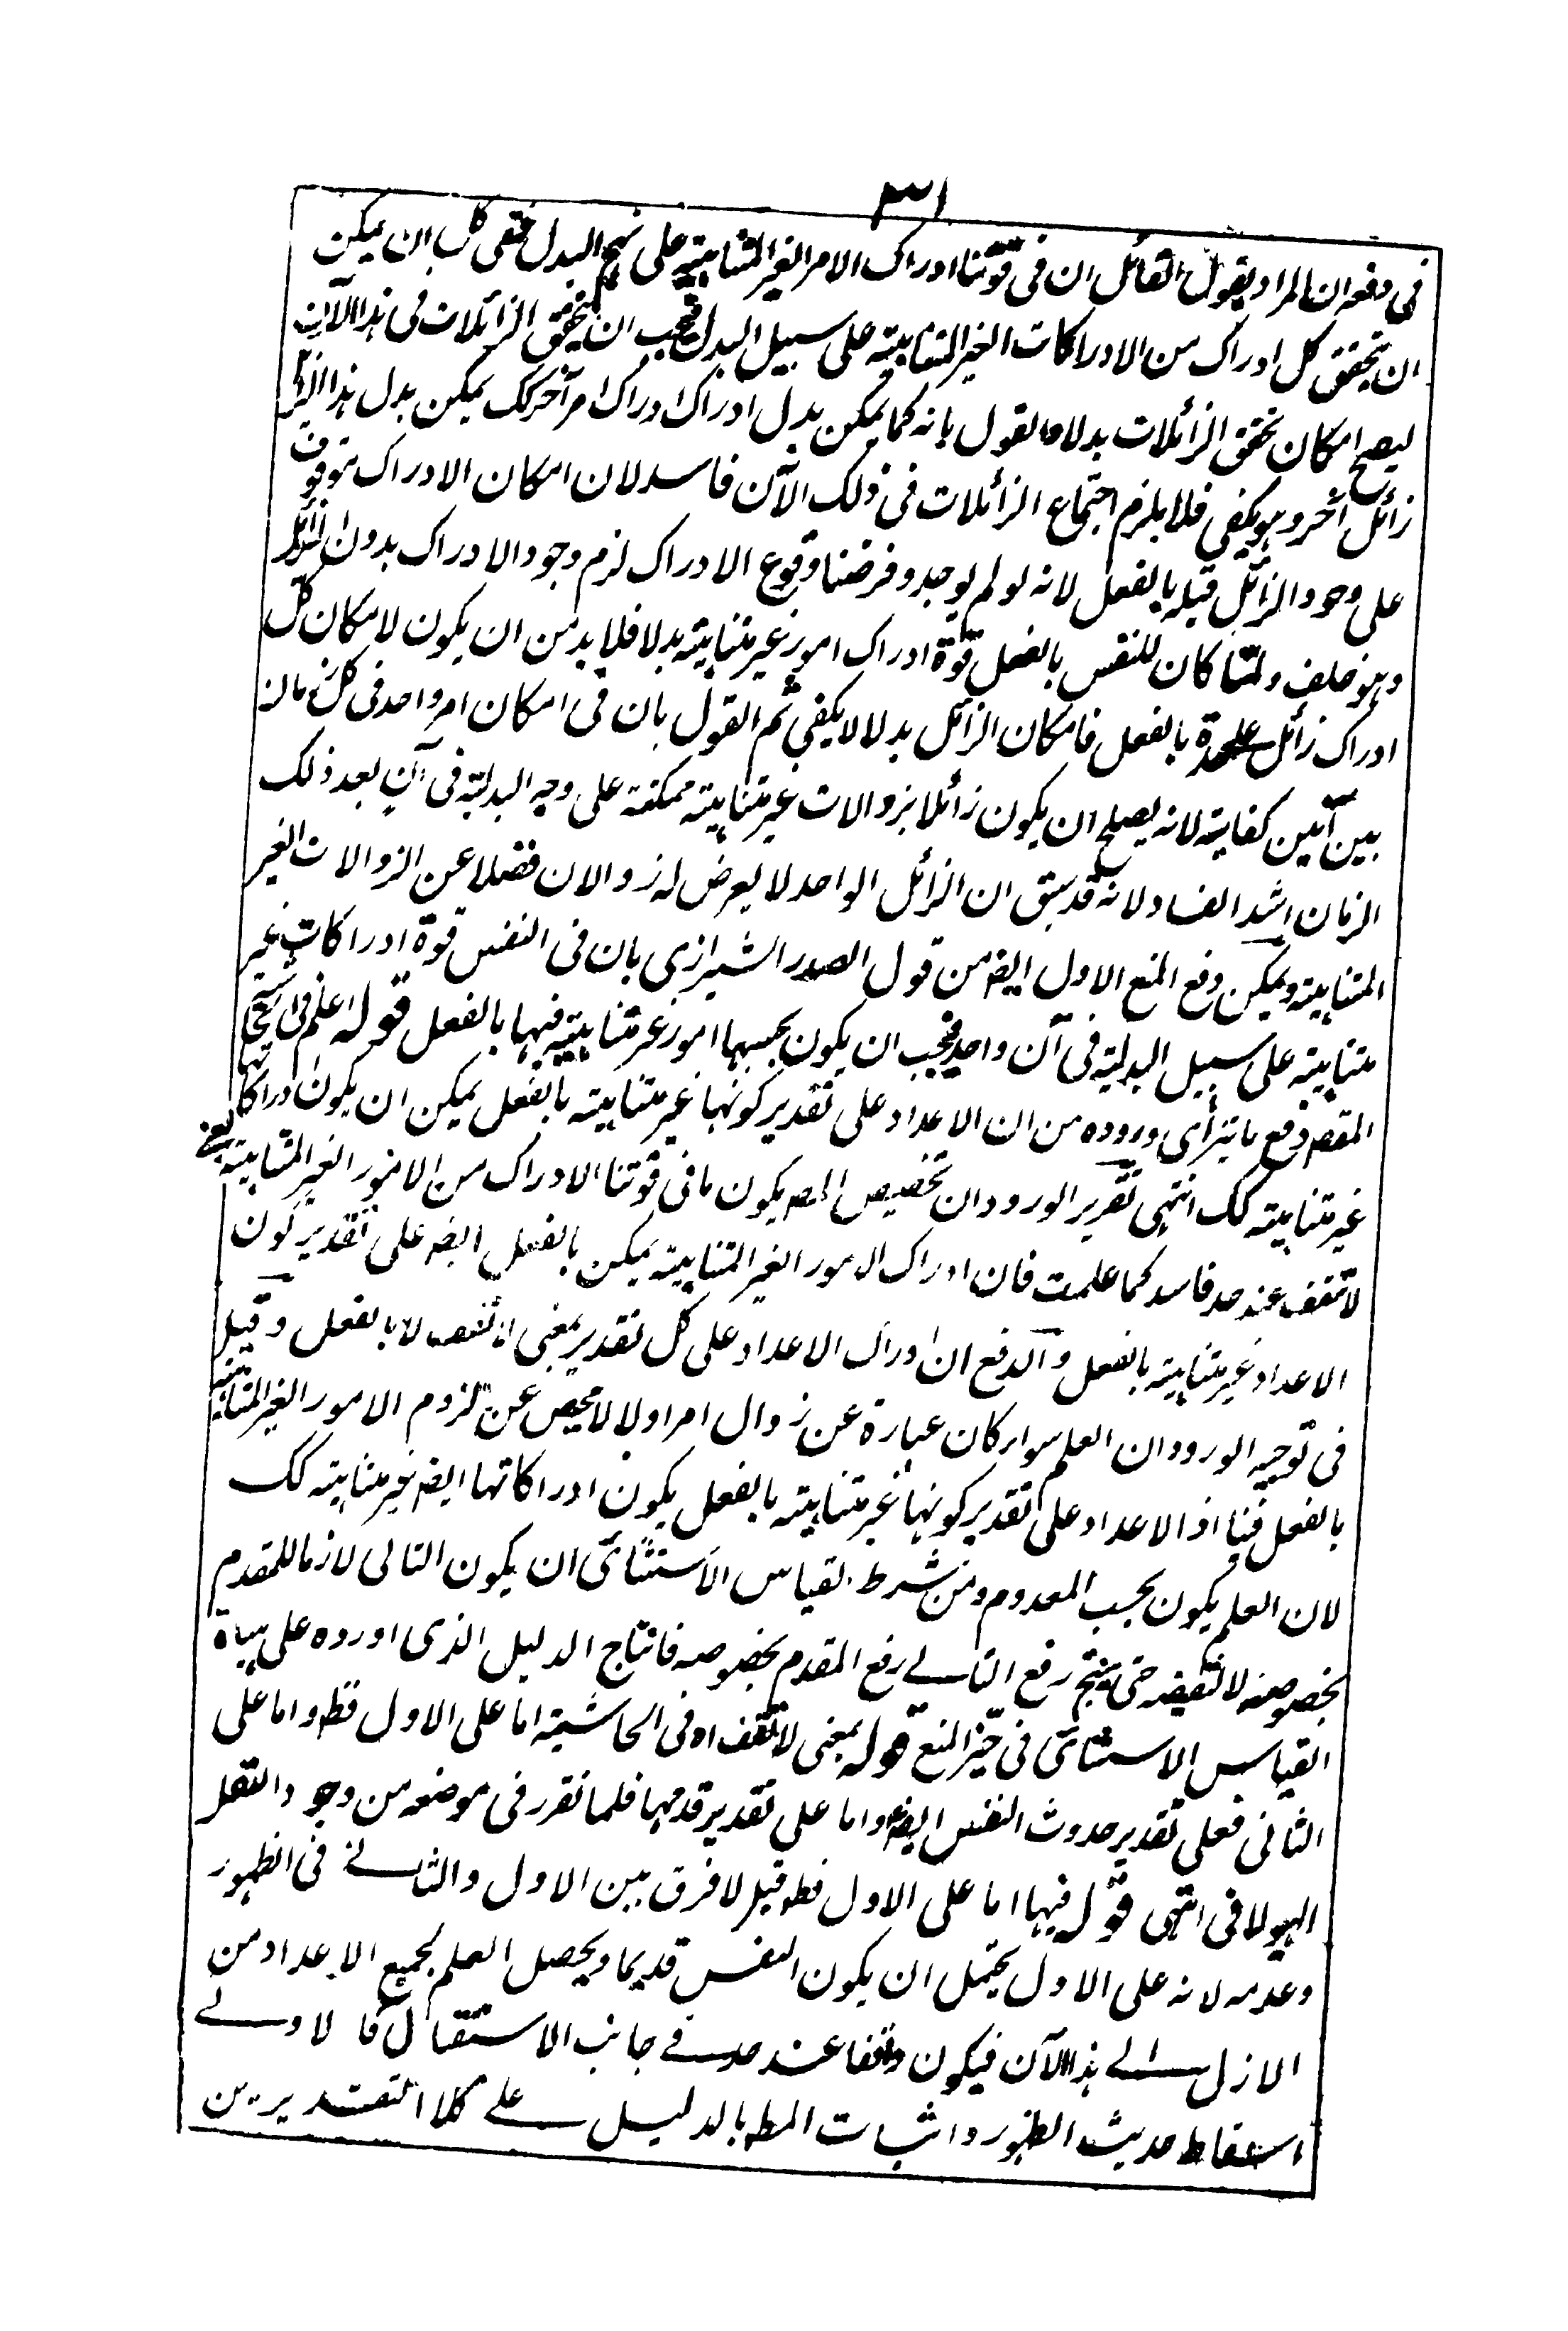 ٣١
فى دفعه ان المراد بقول القائل ان فى قوتنا ادراك الامر الغير المتناهية على نهج البدل ففى كل ان يمكن
ان يتحقق كل ادراك من الادراكات الغير المتناهية على سبيل البدل فيجب ان يتحقق الزائلات فى هذا الآن
ليصح امكان تحقق الزائلات بدلا والقول بانه كما يمكن بدل ادراك ادراك امر آخر كك يمكن بدل هذا الزائل
زائل آخر وهو يكفى فلا يلزم اجتماع الزائلات فى ذلك الآن فاسد لان امكان الادراك متوقف
على وجود الزائل قبله بالفعل لانه لو لم يوجد وفرضنا وقوع الادراك لزم وجود الادراك بدون الزائل
وهو خلف ولما كان للنفس بالفعل قوة ادراك امور غير متناهية بدلا فلا بد من ان يكون لامكان كل
ادراك زائل علحدة بالفعل فامكان الزائل بدلا لا يكفى ثم القول بان فى امكان امر واحد فى كل زمان
بين آنين كفاية لانه يصلح ان يكون زائلا بزوالات غير متناهية ممكنة على وجه البدلية فى آن بعد ذلك
الزمان اشد الفساد لانه قد سبق ان الزائل الواحد لا يعرض له زوالان فضلا عن الزوالات الغير
المتناهية ويمكن دفع المنع الاول ايضه من قول الصدر الشيرازى بان فى النفس قوة ادراكات غير
متناهية على سبيل البدلية فى آن واحد فيجب ان يكون بحسبها امور غير متناهية فيها بالفعل قوله اعلم
المقصه دفع ما يترأى وروده من ان الاعداد على تقدير كونها غير متناهية بالفعل يمكن ان يكون ادراكاتها
غير متناهية كك انتهى تقرير الورود ان تخصيص المصه يكون ما فى قوتنا الادراك من الامور الغير المتناهية بمعنى
لا تقف عند حد فاسد كما علمت فان ادراك الامور الغير المتناهية يمكن بالفعل ايضه على تقدير كون
الاعداد غير متناهية بالفعل والدفع ان ادراك الاعداد على كل تقدير بمعنى لا تقف لا بالفعل وقيل
فى توجيه الورود ان العلم سواء كان عبارة عن زوال امر اولا لا محيص عن لزوم الامور الغير المتناهية
بالفعل فينا اذ الاعداد على تقدير كونها غير متناهية بالفعل يكون ادراكاتها ايضه غير متناهية كك
لان العلم يكون بحسب المعدوم ومن شرط القياس الاستثنائى ان يكون التالى لازما للمقدم
بخصوصه لا لنقيضه حتى ينتج رفع التالى رفع المقدم بخصوصه فانتاج الدليل الذى اورده على هيأة
القياس الاستثنائى فى حيز المنع قوله بمعنى لا تقف اه فى الحاشية اما على الاول فظه واما على
الثانى فعلى تقدير حدوث النفس ايضه واما على تقدير قدمها فلما تقرر فى موضعه من وجود العقل
الهيولانى انتهى قوله فيها اما على الاول فظه قيل لا فرق بين الاول والثانى فى الظهور
وعدمه لانه على الاول يحتمل ان يكون النفس قديما ويحصل العلم بجميع الاعداد من
الازل الى هذا الآن فيكون واقفا عند حد فى جانب الاستقبال فالاولى
اسقاط حديث الظهور واثبات المطه بالدليل على كلا التقديرين